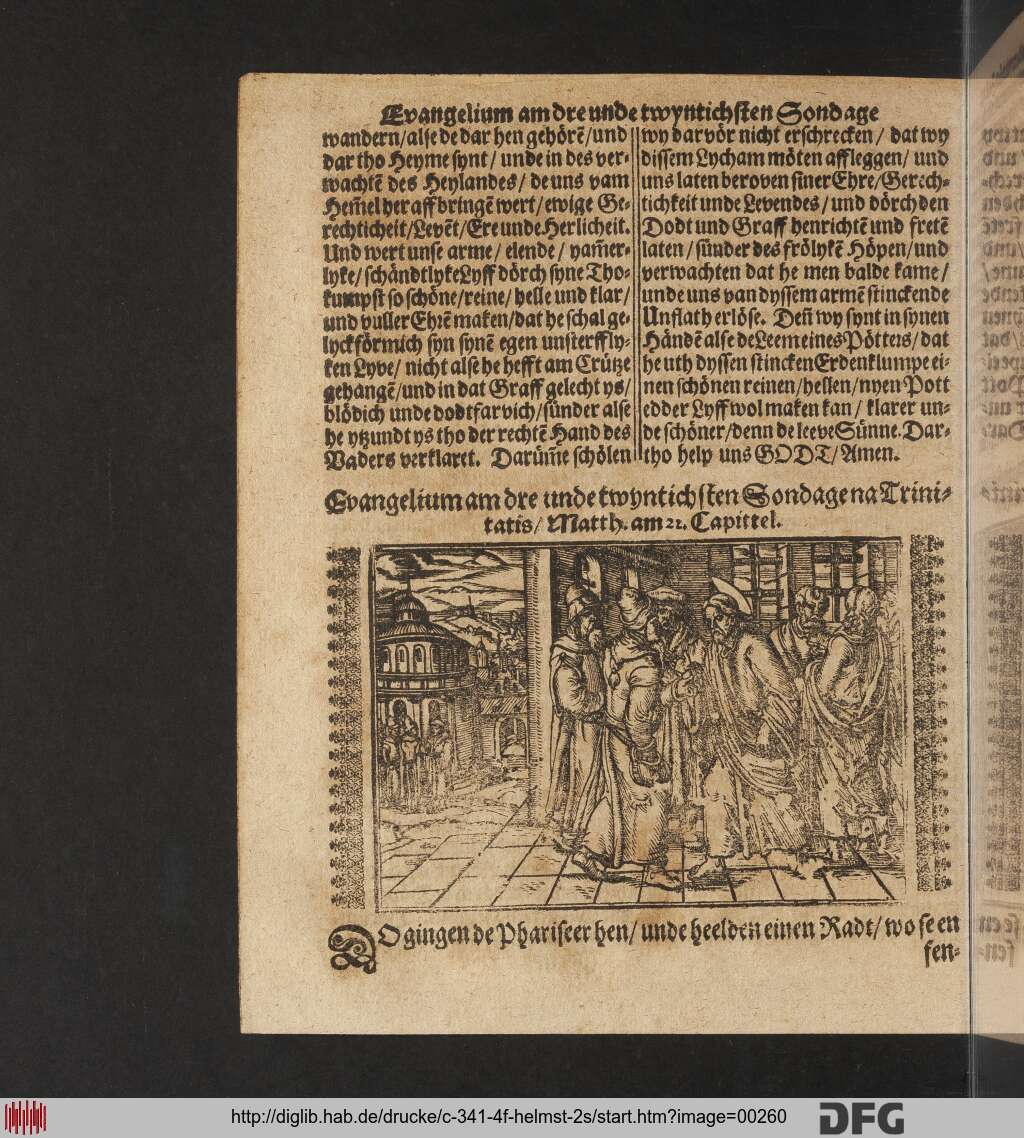 Evangelium am dre unde twyntichsten Sondage
wandern/alse de dar hen gehörē/und
dar tho Heyme synt/ unde in des ver-
wachtē des Heylandes/ de uns vam
Hem̄el her aff bringē wert/ewige Ge-
rechticheit/Levēt/Ere unde Herlicheit.
Und wert unse arme/ elende/ yam̄er-
lyke/ schändtlyke Lyff dörch syne Tho-
kumpst so schöne/reine/ helle und klar/
und vuller Ehrē maken/dat he schal ge-
lyckförmich syn synē egen unsterffly-
ken Lyve/ nicht alse he hefft am Crütze
gehangē/und in dat Graff gelecht ys/
blödich unde dodtfarvich/sünder alse
he ytzundt ys tho der rechtē Hand des
Vaders verklaret. Darüm̄e schölen
wy dar vör nicht erschrecken/ dat wy
dissem Lycham möten affleggen/ und
uns laten beroven siner Ehre/Gerech-
tichkeit unde Levendes/ und dörch den
Dodt und Graff henrichtē und fretē
laten/ sünder des frölykē Höpen/und
verwachten dat he men balde kame/
unde uns van dyssem armē stinckende
Unflath erlöse. Den̄ wy synt in synen
Händē alse de Leem eines Pötters/dat
he uth dyssen stincken Erdenklumpe ei-
nen schönen reinen/hellen/nyen Pott
edder Lyff wol maken kan/ klarer un-
de schöner/denn de leeve Sünne. Dar-
tho help uns GODT/Amen.
Evangelium am dre unde twyntichsten Sondage na Trini-
tatis/ Matth. am 22. Capittel.
DO gingen de Phariseer hen/ unde heelden einen Radt/ wo se en
fen-
http://diglib.hab.de/drucke/c-341-4f-helmst-2s/start.htm?image=00260
DFG